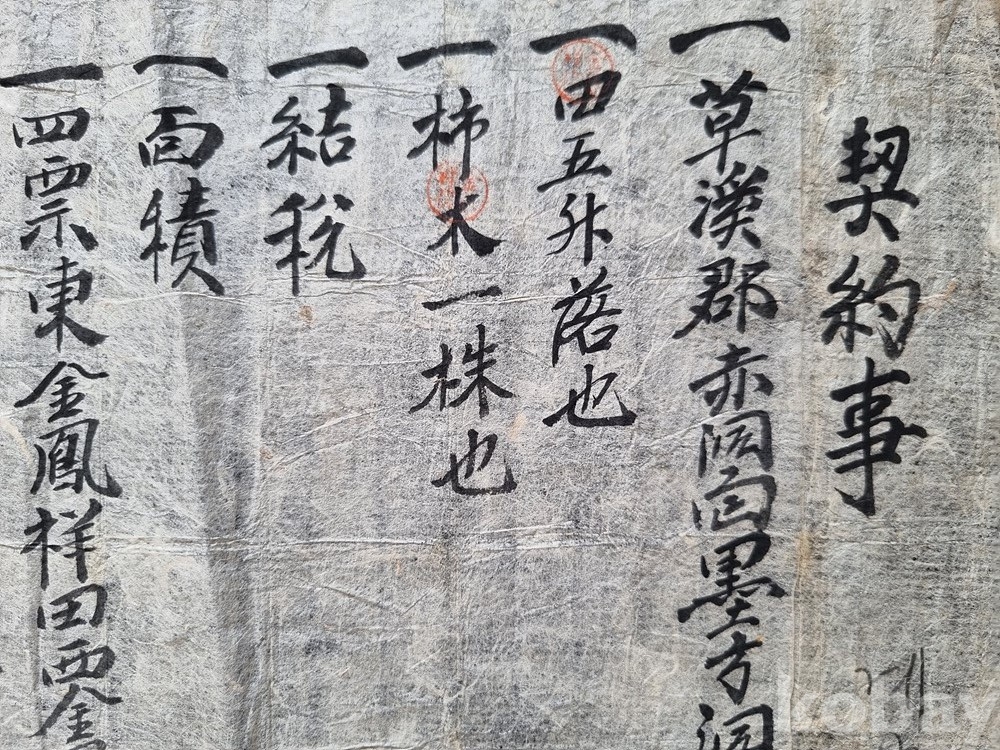 契約事
一 草溪郡赤洞面墨方洞
一 田五升落也
一 柿木一株也
一 結稅
一 面積
一 四票東金鳳祥田西金
kobay